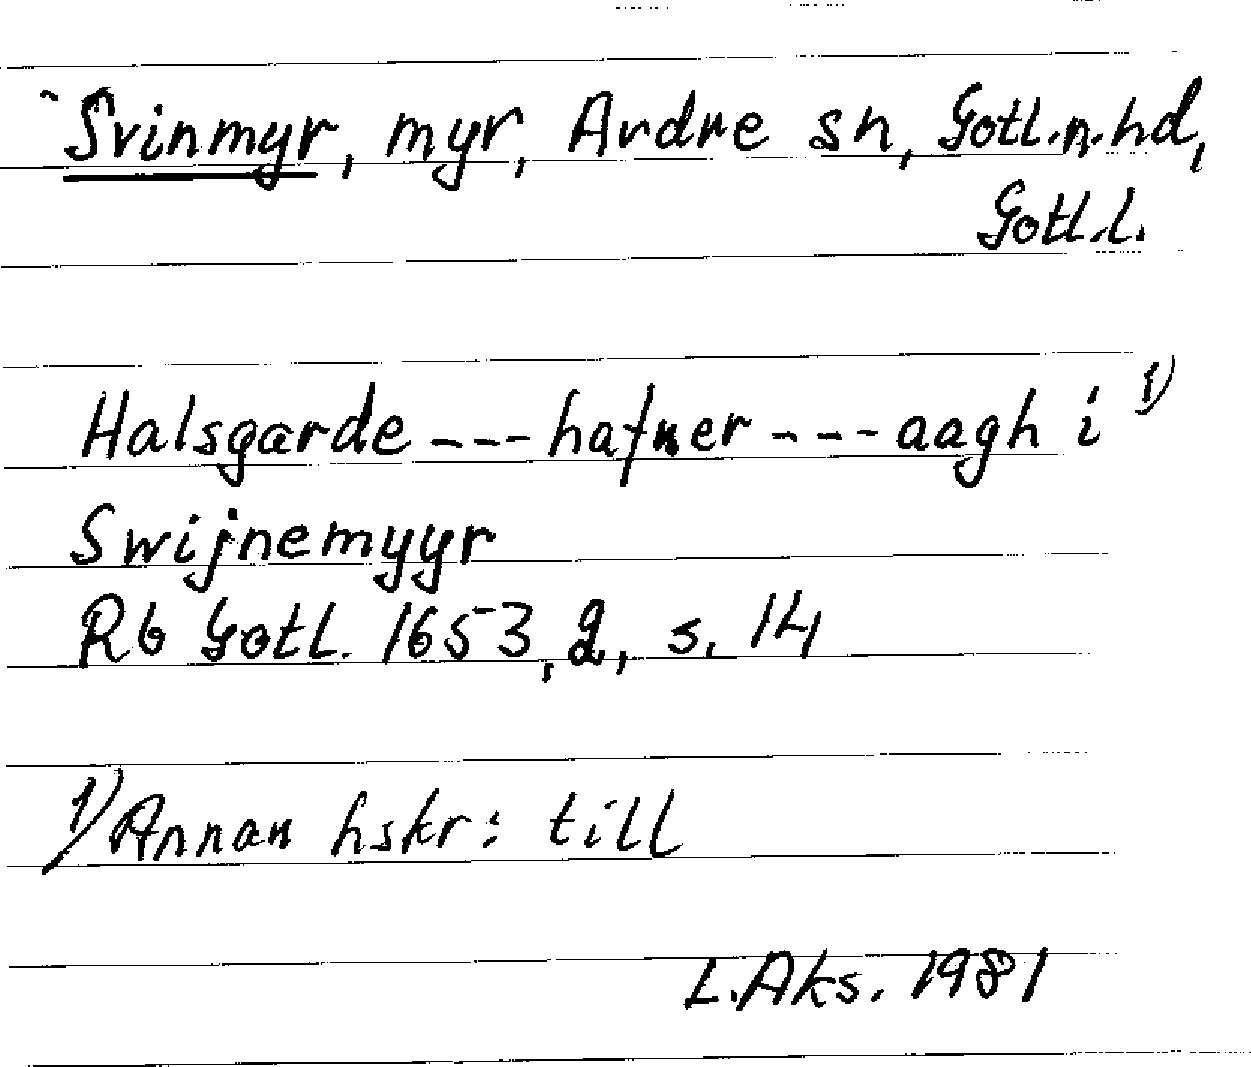 ~Svinmyr, myr, Ardre sn, Gotl.n.hd,
Gotl.l.
Halsgarde --- hafuer --- aagh i 1)
Swijnemyyr
Rb Gotl. 1653, 2, s. 14
1) Annan hskr: till
L.Aks. 1981